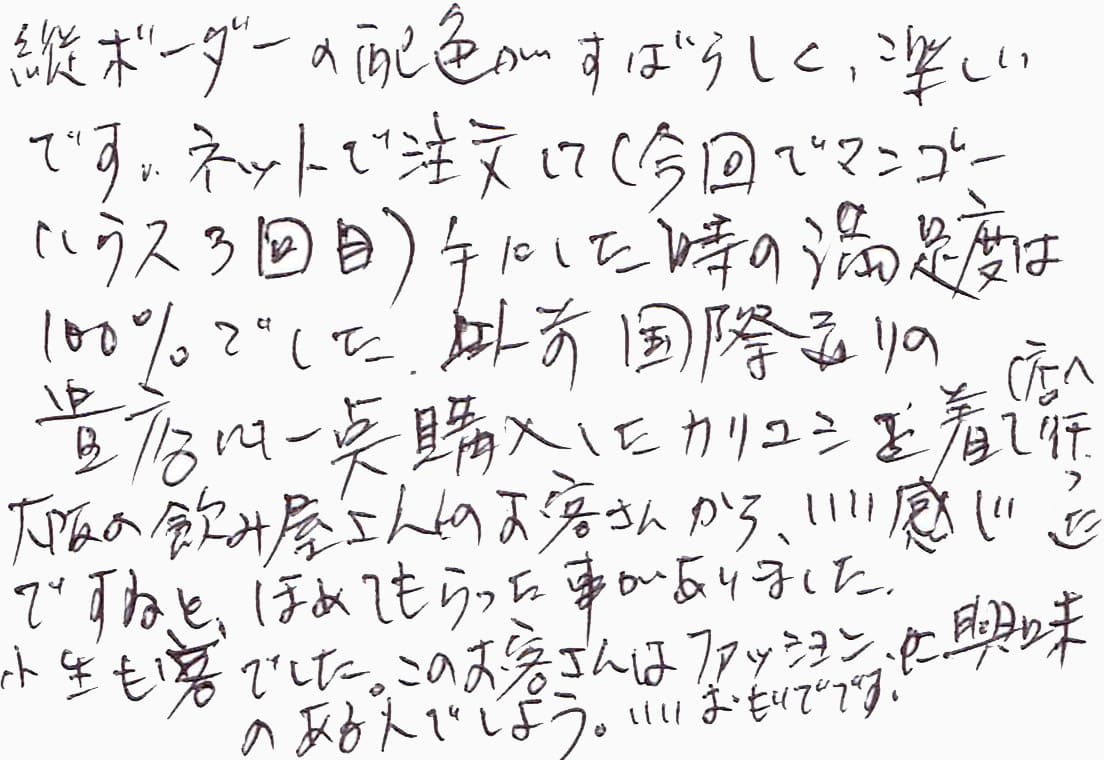 縦ボーダーの配色がすばらしく、楽しい
です。ネットで注文して(今回でマンゴー
ハウス3回目)手にした時の満足度は
100%でした。以前国際通りの
貴店にて一点購入したカリユシを着て(店へ行った
大阪の飲み屋さんのお客さんから、いい感じ
ですねと、ほめてもらった事がありました。
小生も客でした。このお客さんはファッションに興味
のある人でしょう。いいおもいでです。